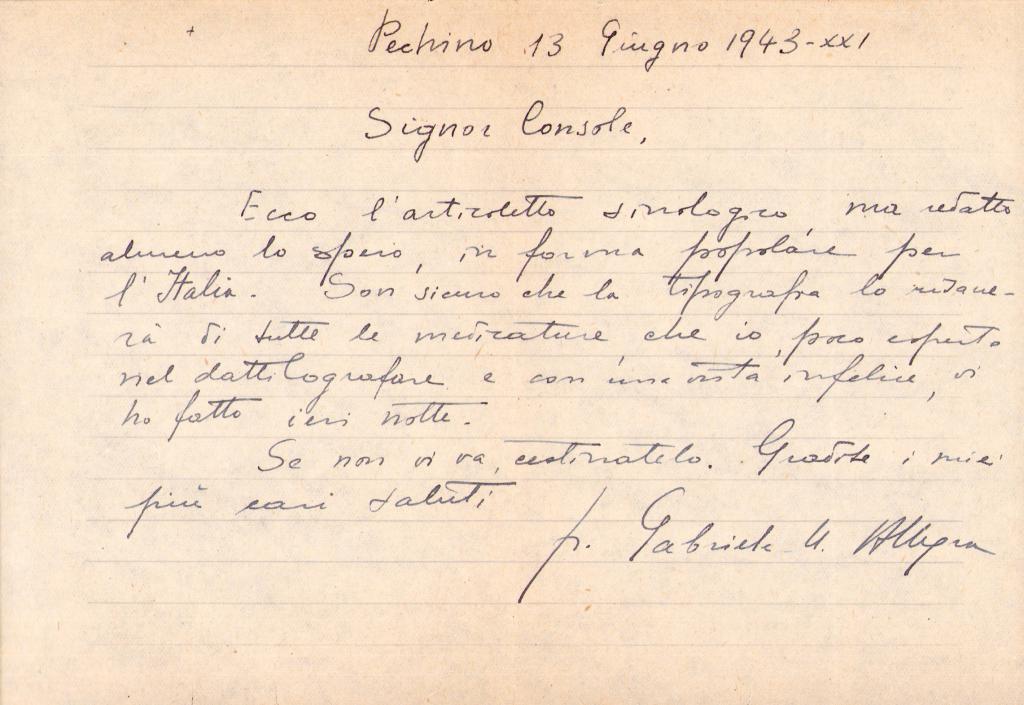 +
Pechino 13 Giugno 1943-XXI
Signor Console,
Ecco l'articoletto sinologico ma redatto
almeno lo spero, in forma popolare per
l'Italia. Son sicuro che la tipografia lo
rà di tutte le che io, poco esperto
nel dattilografare e con una vista infelice, vi
ho fatto ieri notte.
Se non vi va, cestinatelo. Gradite i miei
più cari saluti
fr. Gabriele M. Allegra